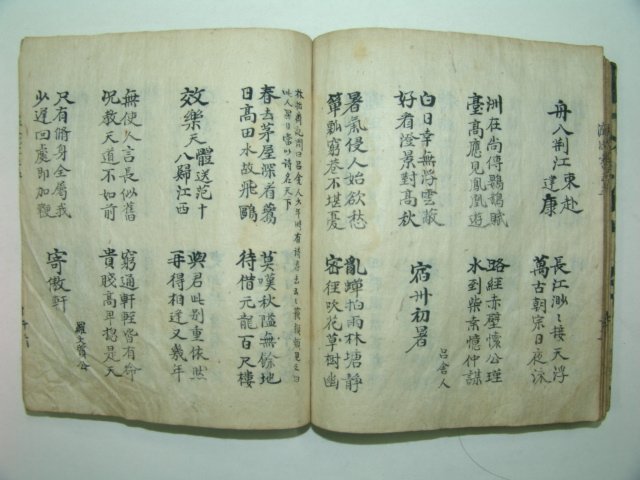 舟入荆江東赴
建康
長江渺々接天浮
萬古朝宗日夜流
洲在尚傳鸚鵡賦
臺高應見鳳凰遊
路經赤壁懷公瑾
水到柴桑憶仲謀
白日幸無浮雲蔽
好看澄景對高秋
宿州初暑 呂舍人
暑氣侵人始欲愁
簞瓢窮巷不堪憂
亂蟬怕雨林塘靜
密徑吹花草樹幽
呂舍人
此人異日當以詩名天下
春去茅屋深着鷰
日高田水故飛鷗
莫嘆湫隘無餘地
待借元龍百尺樓
效樂天體送范十
八歸江西
與君此別重依然
再得相逢又幾年
無使久言長似舊
況教天道不如前
窮通軒輊皆有命
貴賤高卑揔是天
只有脩身全屬我
少遲回處即加鞭
寄傲軒